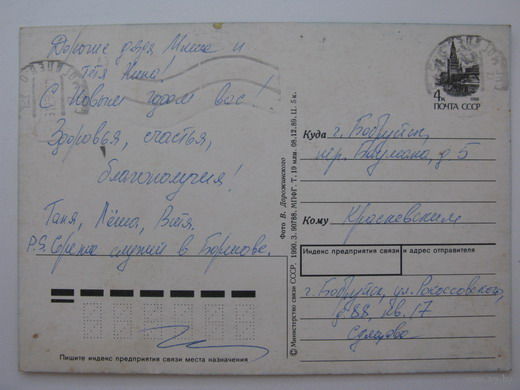 Дорогие дядя Миша и
тётя Нина!
С Новым годом вас!
Здоровья, счастья,
благополучия!
Таня, Лёша, Витя.
P.S. Серёжа служит в Борисове.
Пишите индекс предприятия связи места назначения
© Министерство связи СССР. 1990. З. 90788. МПФГ. Т. 19 млн. 08.12.89. Ц. 5 к.
Фото В. Дорожинского
4к
ПОЧТА СССР
1988
Куда г. Бобруйск,
пер. Баумана, д 5
Кому Красневским
Индекс предприятия связи и адрес отправителя
г. Бобруйск, ул. Рокоссовского,
д 88, кв. 17